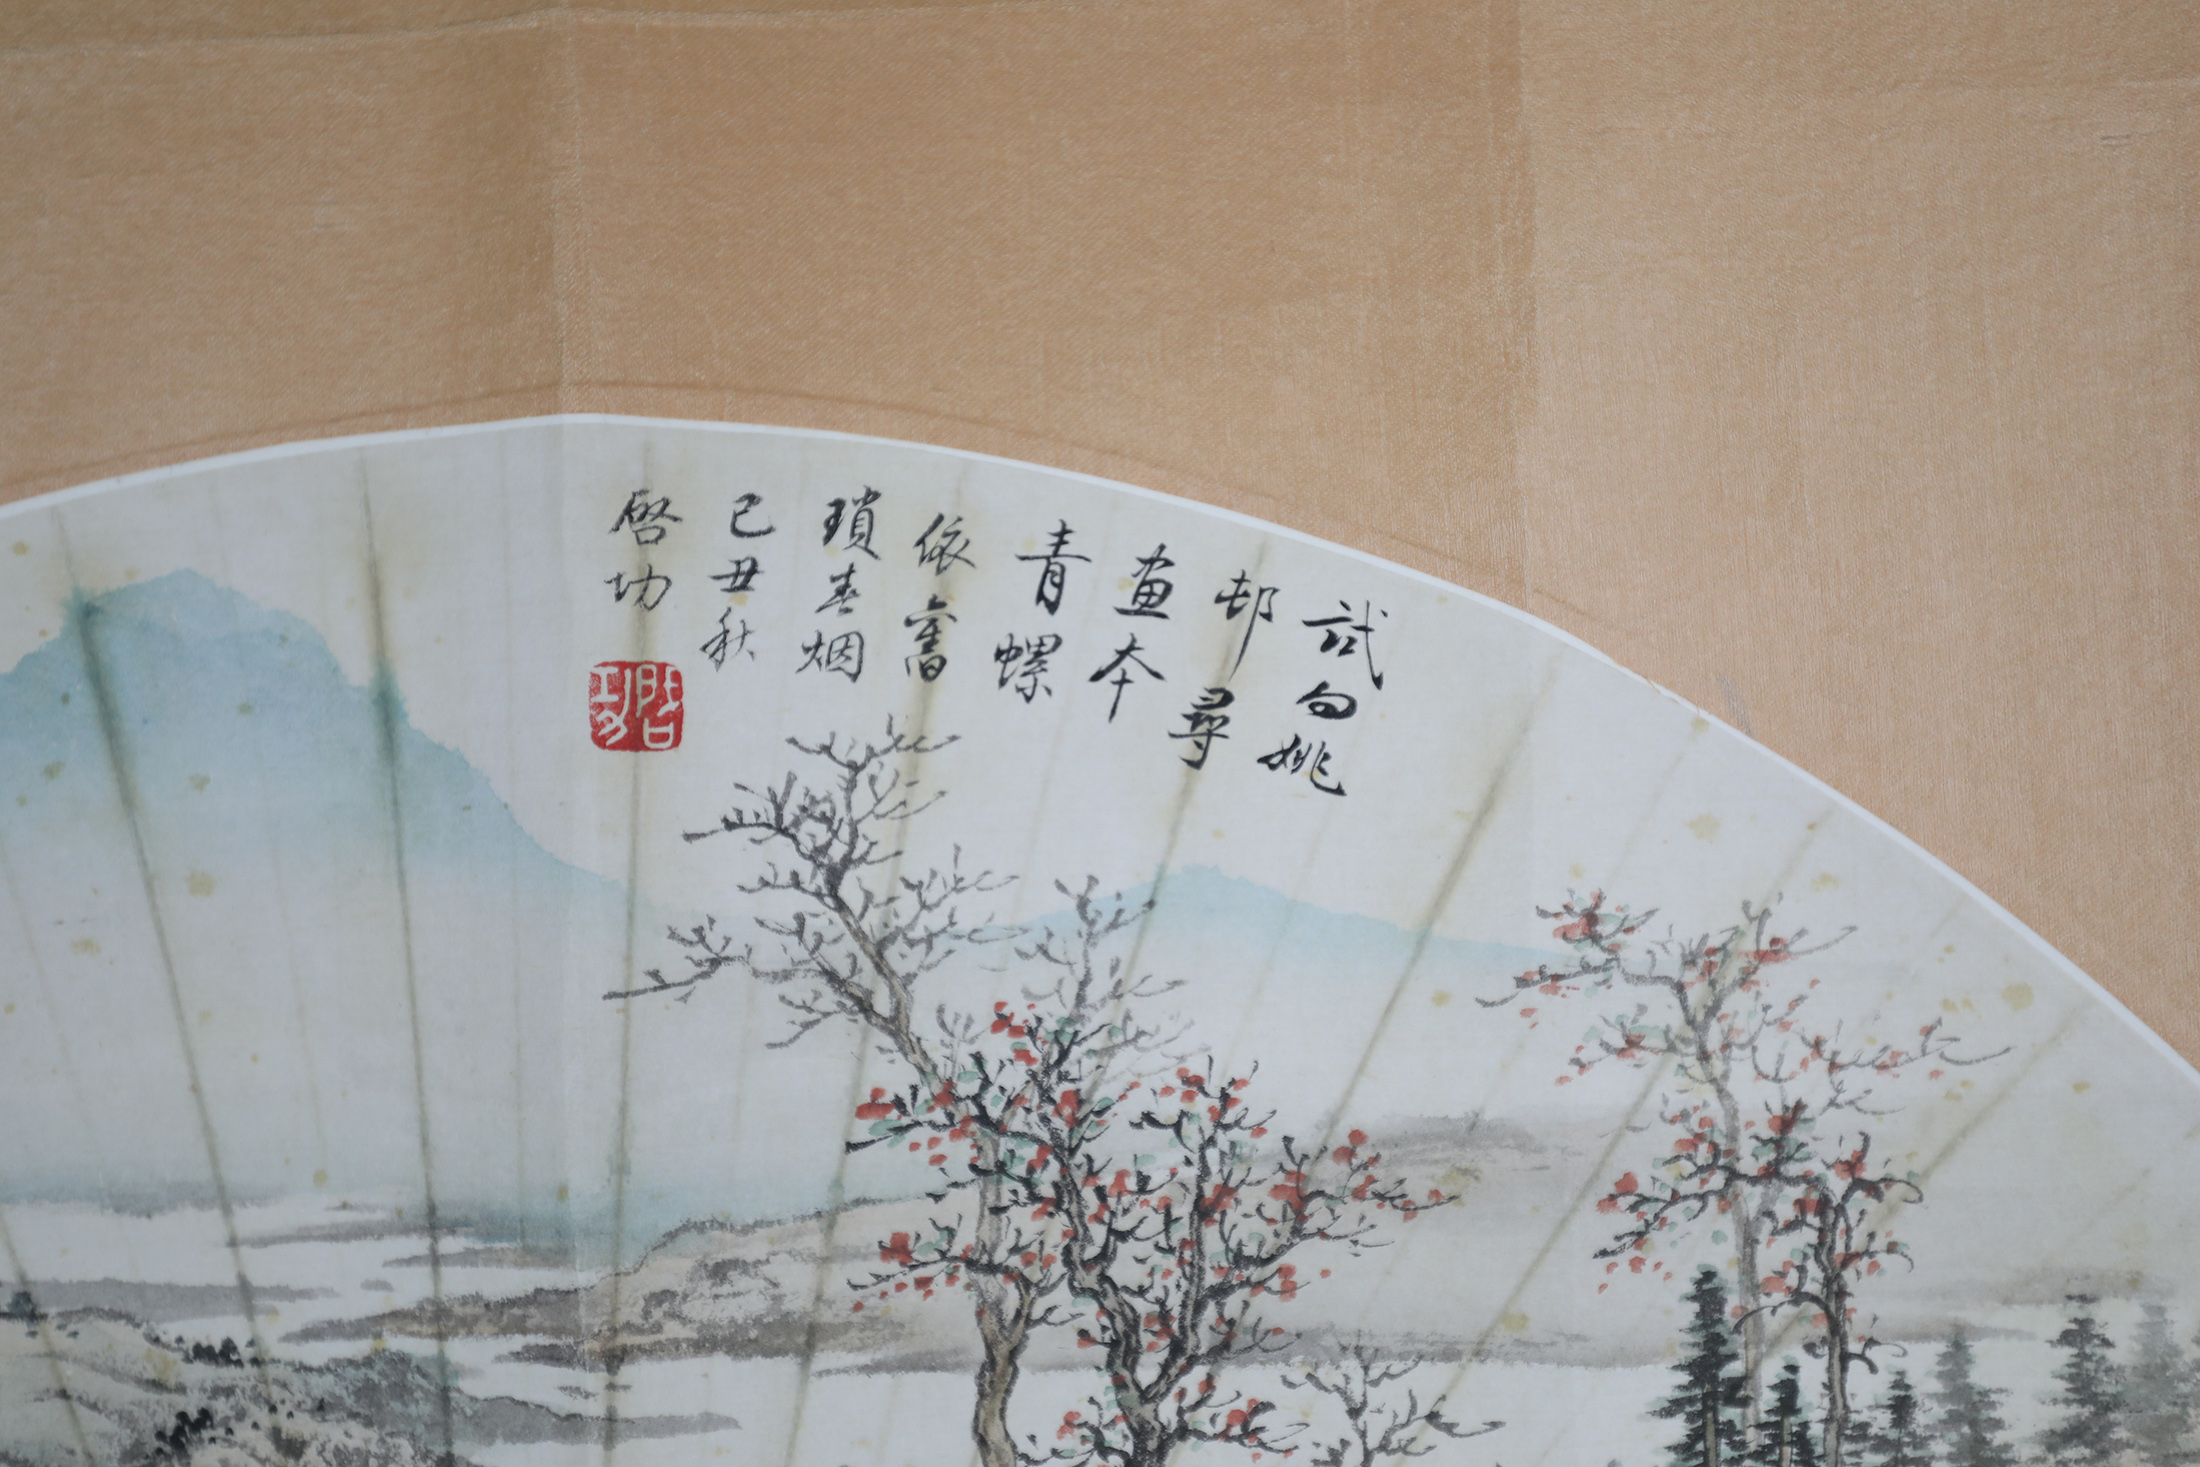 試向姚
邨尋
畫本
青螺
依舊
瑣春烟
己丑秋
啓功
啓功